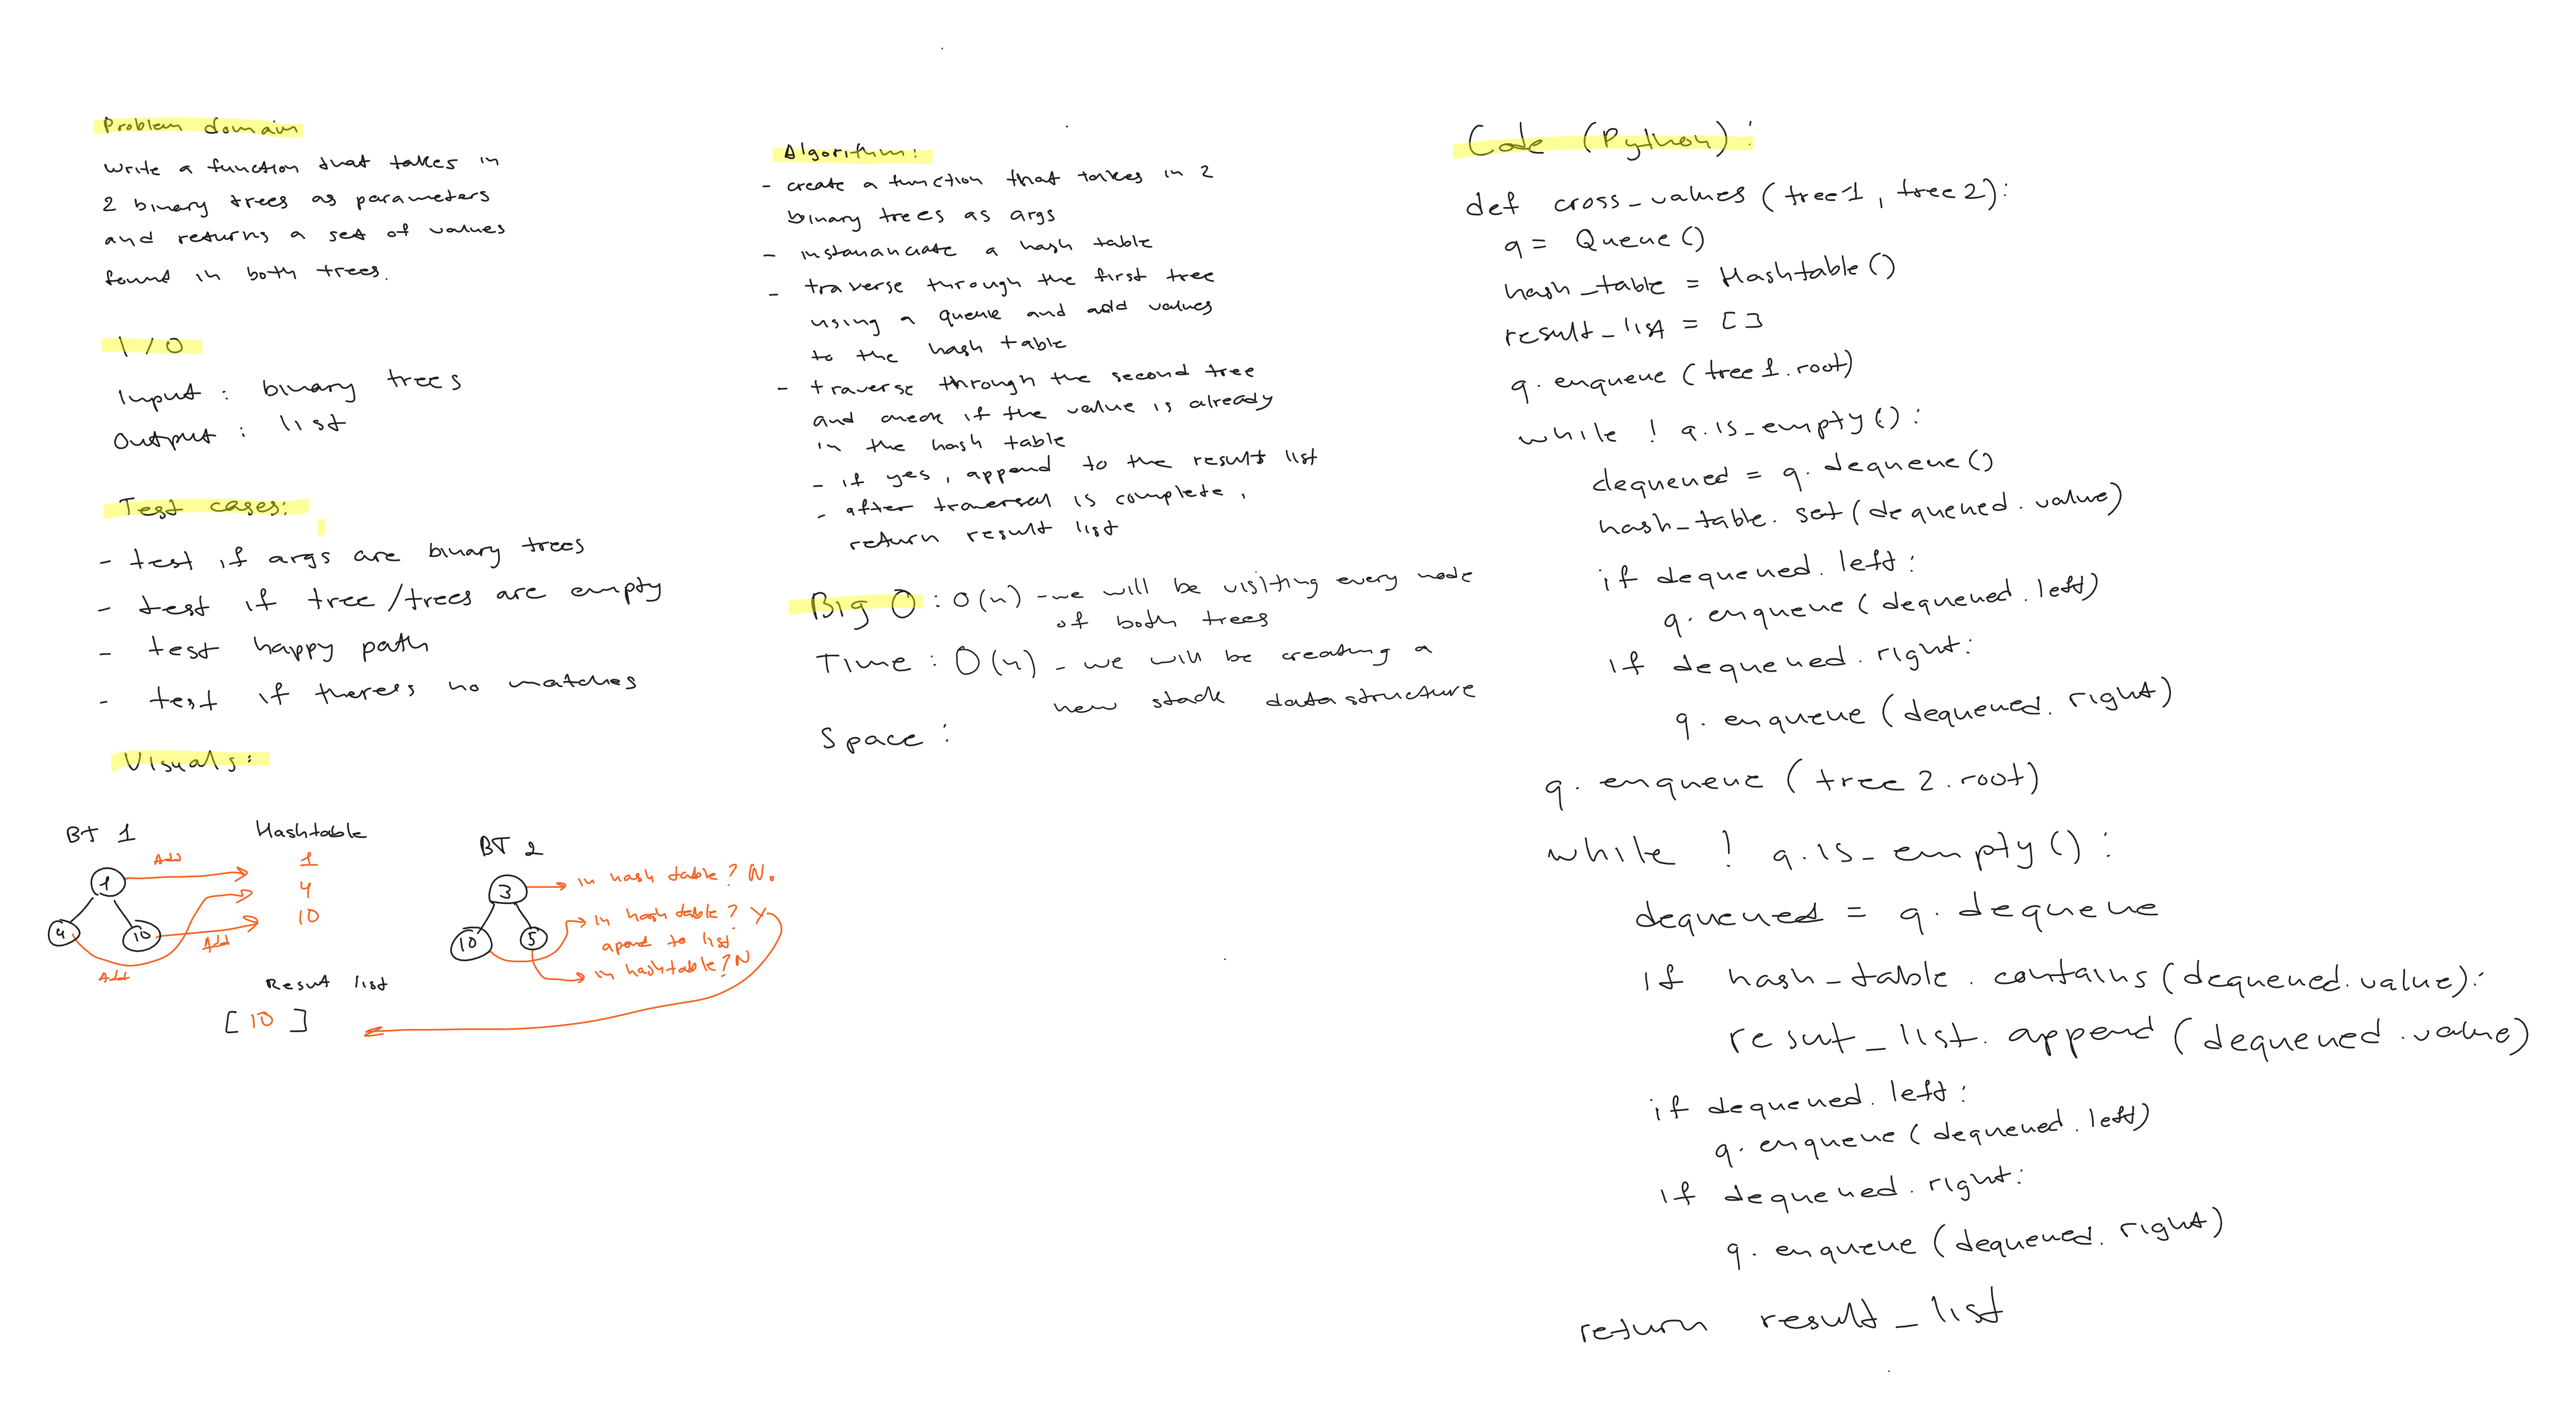 Problem domain
write a function that takes in
2 binary trees as parameters
and returns a set of values
found in both trees.
I/O
Input : binary trees
Output : list
Test cases:
- test if args are binary trees
- test if tree/trees are empty
- test happy path
- test if there's no matches
Visuals:
BT 1
Hashtable
1
4
10
1
4
10
Add
Add
Add
BT 2
3
10
5
in hash table? No
in hash table? Y
apend to list
in hashtable? N
Resut list
[10]
Algorithm:
- create a function that takes in 2
binary trees as args
- instananciate a hash table
- traverse through the first tree
using a queue and add values
to the hash table
- traverse through the second tree
and check if the value is already
in the hash table
- if yes, append to the result list
- after traversal is complete,
return result list
Big O : O(n) - we will be visiting every node
of both trees
Time : O(n) - we will be creating a
new stack data structure
Space :
Code (Python) :
def cross_values (tree1, tree2):
q = Queue()
hash_table = Hashtable()
result_list = []
q. enqueue (tree1.root)
while ! q.is_empty():
dequeued = q. dequeue()
hash_table. set(dequeued.value)
if dequeued.left:
q. enqueue (dequeued.left)
if dequeued.right:
q. enqueue (dequeued.right)
q. enqueue (tree2.root)
while ! q.is_empty():
dequeued = q. dequeue
if hash_table.contains(dequeued.value):
resut_list.append(dequeued.value)
if dequeued.left:
q. enqueue (dequeued.left)
if dequeued.right:
q. enqueue (dequeued.right)
return result_list